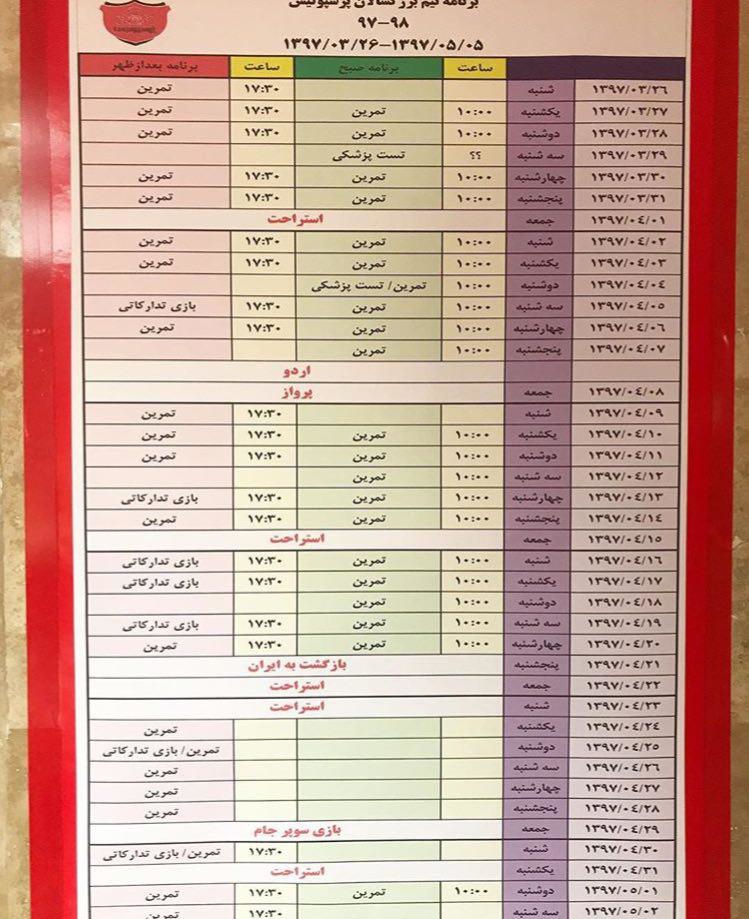 برنامه تیم بزرگسالان پرسپولیس
۹۷-۹۸
۱۳۹۷/۰۳/۲۶-۱۳۹۷/۰۵/۰۵
ساعت برنامه صبح ساعت برنامه بعدازظهر
۱۳۹۷/۰۳/۲۶ شنبه ۱۷:۳۰ تمرین
۱۳۹۷/۰۳/۲۷ یکشنبه ۱۰:۰۰ تمرین ۱۷:۳۰ تمرین
۱۳۹۷/۰۳/۲۸ دوشنبه ۱۰:۰۰ تمرین ۱۷:۳۰ تمرین
۱۳۹۷/۰۳/۲۹ سه شنبه ؟؟ تست پزشکی
۱۳۹۷/۰۳/۳۰ چهارشنبه ۱۰:۰۰ تمرین ۱۷:۳۰ تمرین
۱۳۹۷/۰۳/۳۱ پنجشنبه ۱۰:۰۰ تمرین ۱۷:۳۰ تمرین
۱۳۹۷/۰۴/۰۱ جمعه استراحت
۱۳۹۷/۰۴/۰۲ شنبه ۱۰:۰۰ تمرین ۱۷:۳۰ تمرین
۱۳۹۷/۰۴/۰۳ یکشنبه ۱۰:۰۰ تمرین ۱۷:۳۰ تمرین
۱۳۹۷/۰۴/۰۴ دوشنبه ۱۰:۰۰ تمرین/ تست پزشکی
۱۳۹۷/۰۴/۰۵ سه شنبه ۱۰:۰۰ تمرین ۱۷:۳۰ بازی تدارکاتی
۱۳۹۷/۰۴/۰۶ چهارشنبه ۱۰:۰۰ تمرین ۱۷:۳۰ تمرین
۱۳۹۷/۰۴/۰۷ پنجشنبه ۱۰:۰۰ تمرین
اردو
۱۳۹۷/۰۴/۰۸ جمعه پرواز
۱۳۹۷/۰۴/۰۹ شنبه ۱۷:۳۰ تمرین
۱۳۹۷/۰۴/۱۰ یکشنبه ۱۰:۰۰ تمرین ۱۷:۳۰ تمرین
۱۳۹۷/۰۴/۱۱ دوشنبه ۱۰:۰۰ تمرین ۱۷:۳۰ تمرین
۱۳۹۷/۰۴/۱۲ سه شنبه ۱۰:۰۰ تمرین
۱۳۹۷/۰۴/۱۳ چهارشنبه ۱۰:۰۰ تمرین ۱۷:۳۰ بازی تدارکاتی
۱۳۹۷/۰۴/۱۴ پنجشنبه ۱۰:۰۰ تمرین ۱۷:۳۰ تمرین
۱۳۹۷/۰۴/۱۵ جمعه استراحت
۱۳۹۷/۰۴/۱۶ شنبه ۱۰:۰۰ تمرین ۱۷:۳۰ بازی تدارکاتی
۱۳۹۷/۰۴/۱۷ یکشنبه ۱۰:۰۰ تمرین ۱۷:۳۰ بازی تدارکاتی
۱۳۹۷/۰۴/۱۸ دوشنبه ۱۰:۰۰ تمرین
۱۳۹۷/۰۴/۱۹ سه شنبه ۱۰:۰۰ تمرین ۱۷:۳۰ بازی تدارکاتی
۱۳۹۷/۰۴/۲۰ چهارشنبه ۱۰:۰۰ تمرین ۱۷:۳۰ تمرین
۱۳۹۷/۰۴/۲۱ پنجشنبه بازگشت به ایران
۱۳۹۷/۰۴/۲۲ جمعه استراحت
۱۳۹۷/۰۴/۲۳ شنبه استراحت
۱۳۹۷/۰۴/۲۴ یکشنبه تمرین
۱۳۹۷/۰۴/۲۵ دوشنبه تمرین/ بازی تدارکاتی
۱۳۹۷/۰۴/۲۶ سه شنبه تمرین
۱۳۹۷/۰۴/۲۷ چهارشنبه تمرین
۱۳۹۷/۰۴/۲۸ پنجشنبه تمرین
۱۳۹۷/۰۴/۲۹ جمعه بازی سوپر جام
۱۳۹۷/۰۴/۳۰ شنبه ۱۷:۳۰ تمرین/ بازی تدارکاتی
۱۳۹۷/۰۴/۳۱ یکشنبه استراحت
۱۳۹۷/۰۵/۰۱ دوشنبه ۱۰:۰۰ تمرین ۱۷:۳۰ تمرین
۱۳۹۷/۰۵/۰۲ سه شنبه ۱۷:۳۰ تمرین